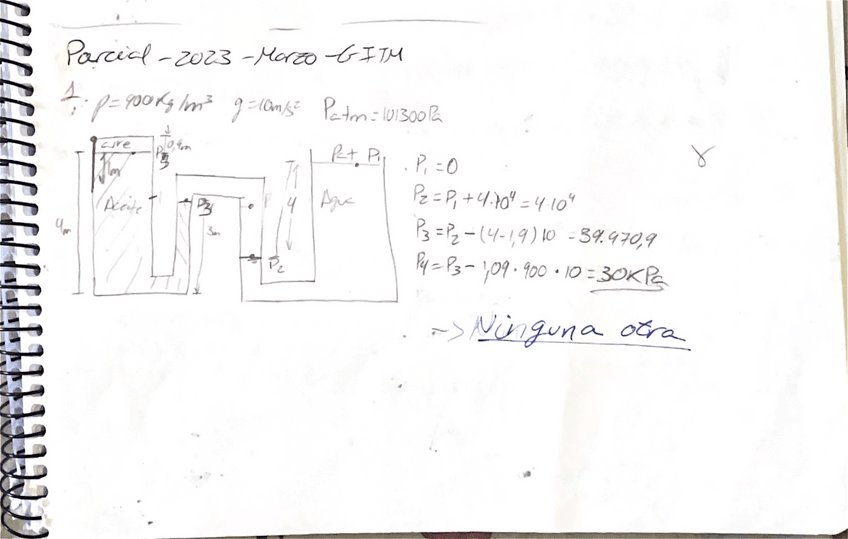 Parcial - 2023 - Marzo - GITM
1. ρ = 900 Kg/m³ g = 10 m/s² Patm = 101300 Pa
aire 0,9m
1m
Aceite
4m
P3
3m
4
P2
P1
Agua
P1 = 0
P2 = P1 + 4·10⁴ = 4·10⁴
P3 = P2 - (4-1,9)10 = 39.970,9
P4 = P3 - 1,09·900·10 = 30KPa
=> Ninguna otra
γ